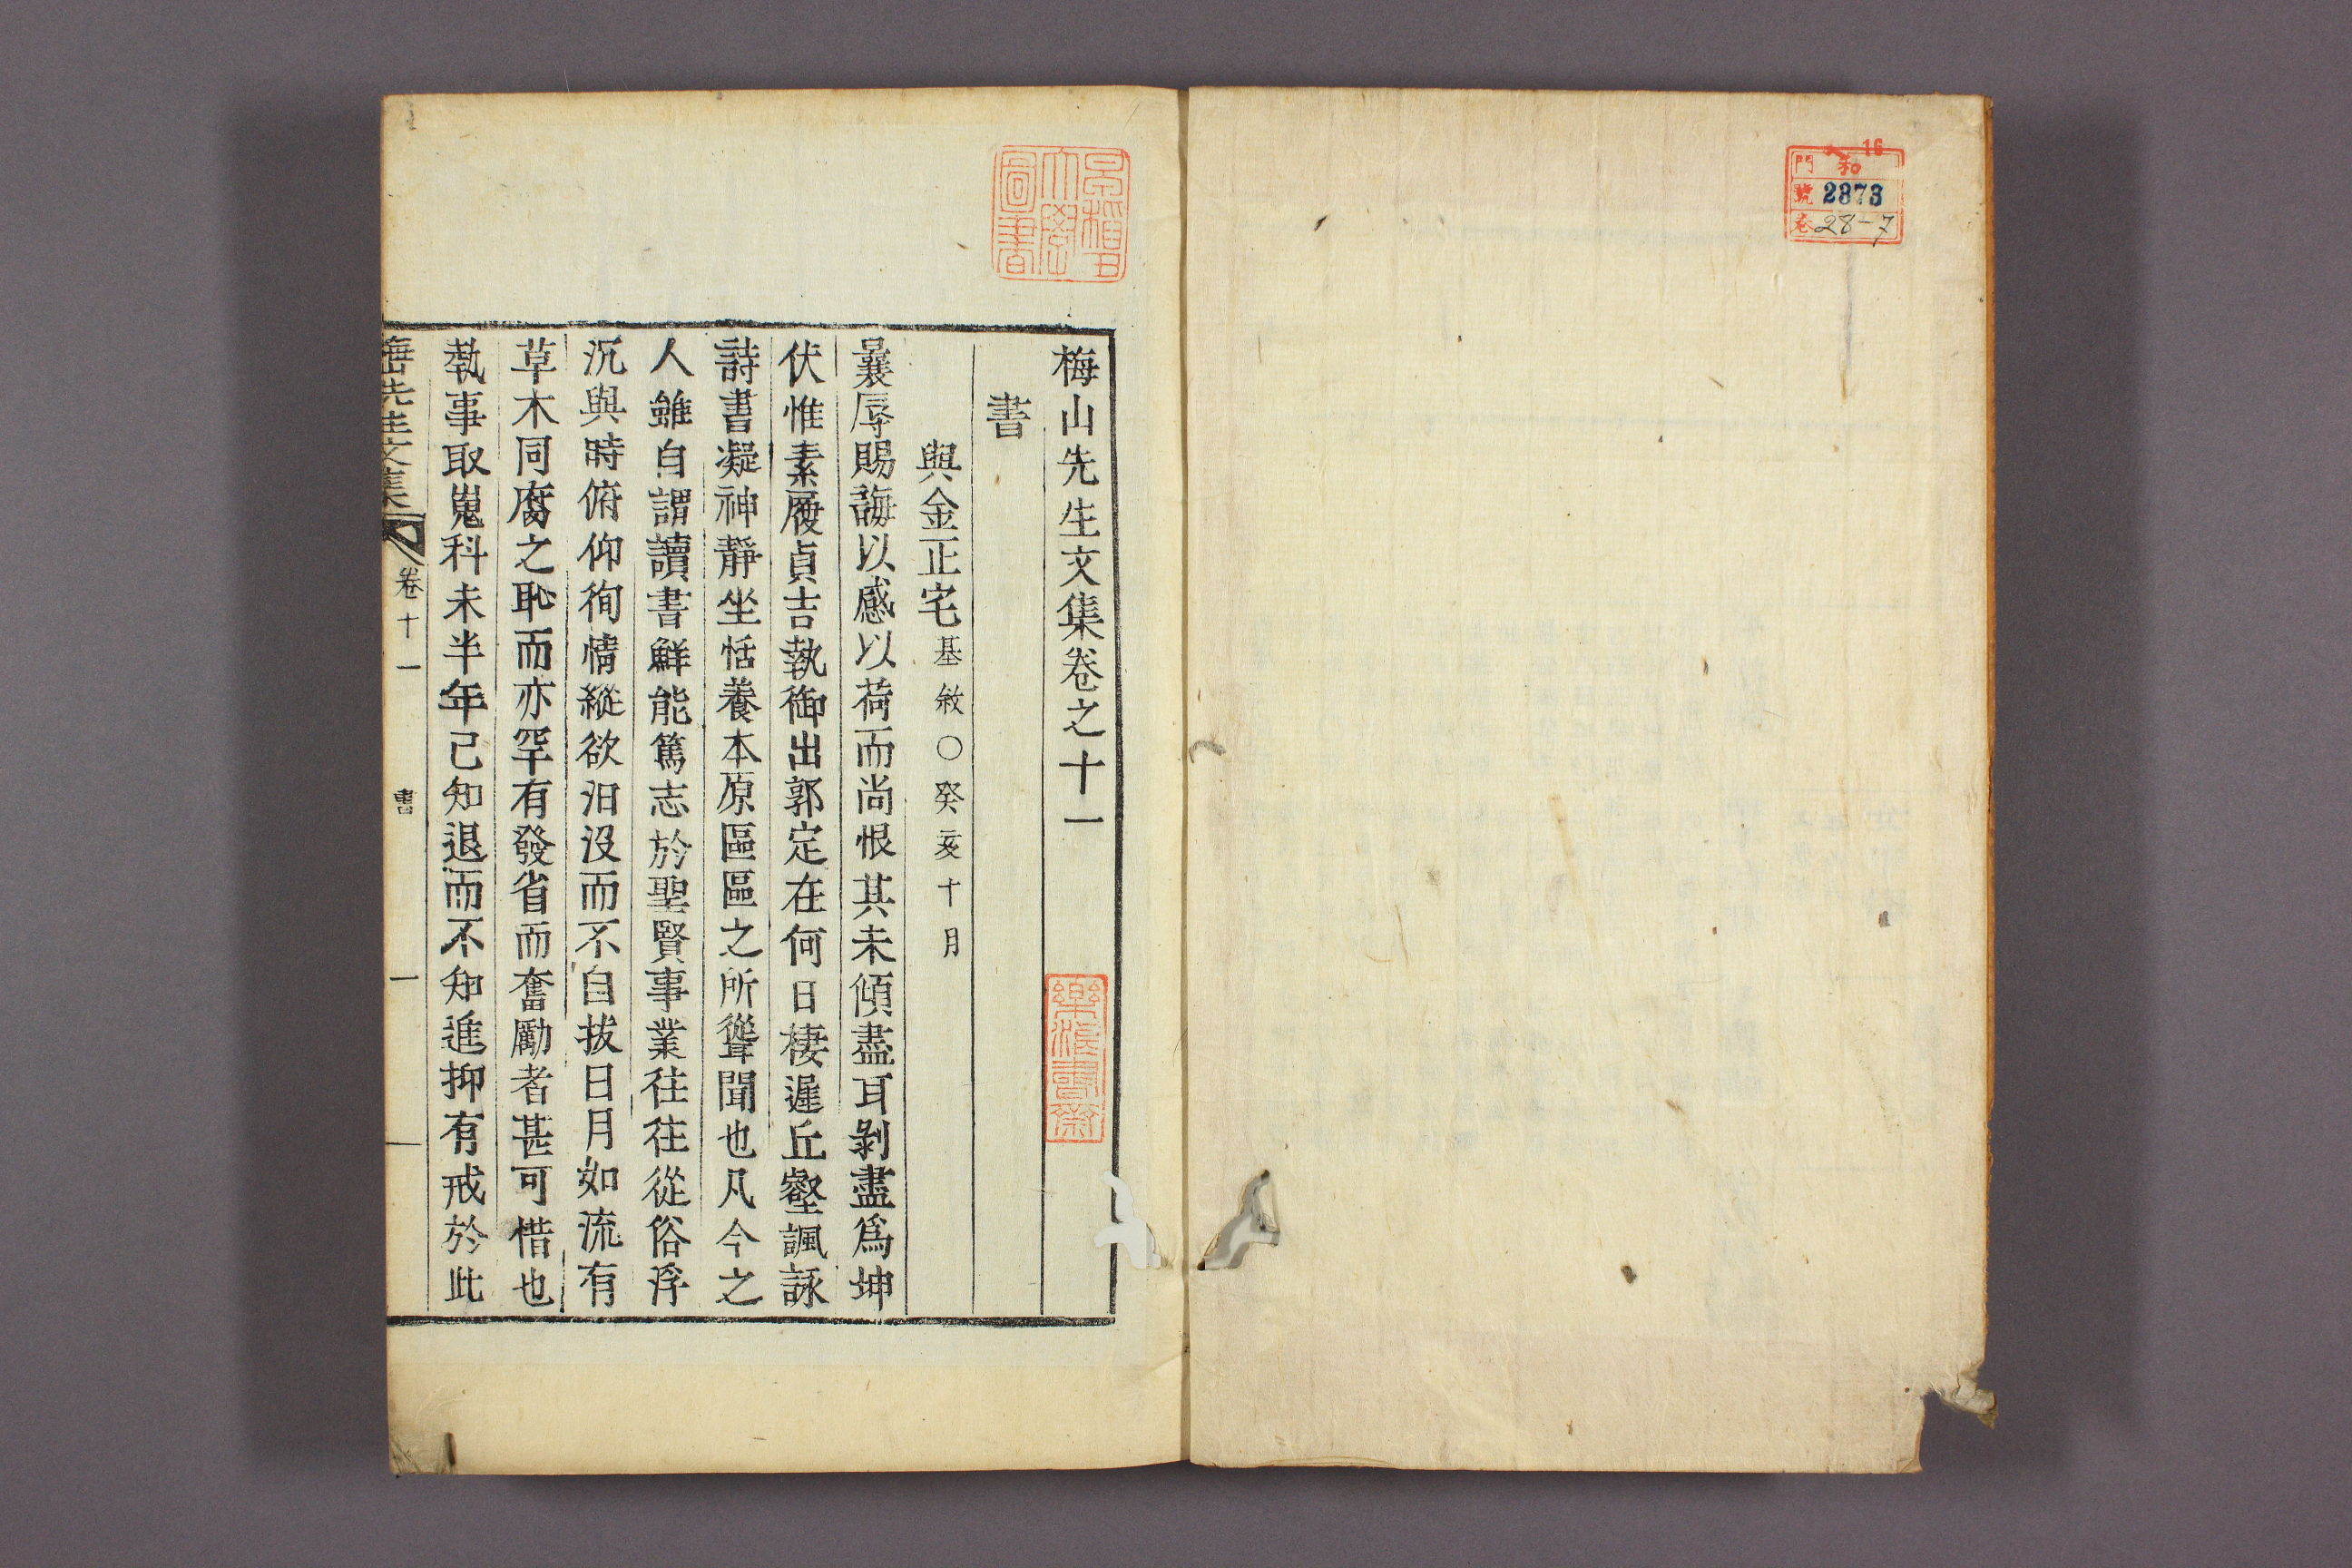 16
和
門
號 2873
卷 28-7
早稻田
大學
圖書
梅山先生文集卷之十一
樂浪書齋
書
與金正宅基敘○癸亥十月
曩辱賜誨以感以荷而尚恨其未傾盡耳剝盡爲坤
伏惟素履貞吉執御出郭定在何日棲遲丘壑諷詠
詩書凝神靜坐恬養本原區區之所聳聞也凡今之
人雖自謂讀書鮮能篤志於聖賢事業往往從俗浮
沉與時俯仰徇情縱欲汨沒而不自拔日月如流有
草木同腐之恥而亦罕有發省而奮勵者甚可惜也
執事取嵬科未半年已知退而不知進抑有戒於此
先生文集 卷十一 書 一